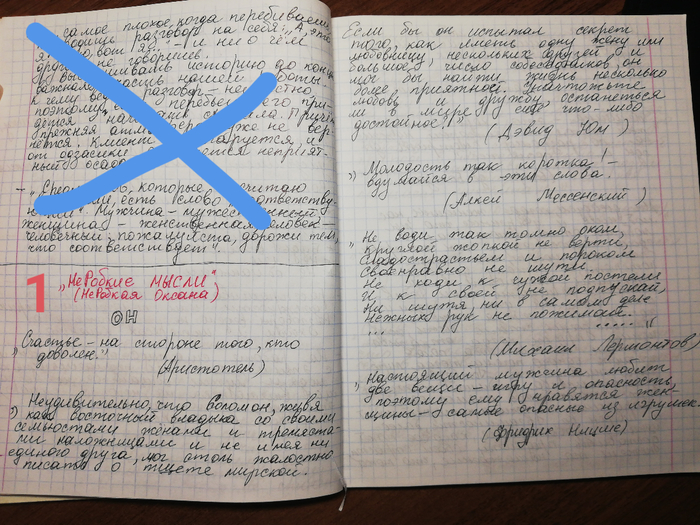 самое плохое, когда перебиваешь
переводишь разговор на себя: "А, это
другое не говоришь.
историю до конца
важная часть нашей работы
к чему разговор - неизвестно
поэтому его при-
дется
нется. Клиент и
от
ный осадок.
- которые считаю
есть слово "соответству-
Мужчина - мужественный,
женщина - женственная, человек -
человечный. пожалуйста, дорожи тем,
что соответствует".
1
"НеРобкие МЫСЛИ"
(НеРобкая Оксана)
ОН
"Счастье - на стороне того, кто
доволен."
(Аристотель)
"Неудивительно, что Соломон, живя
как восточный владыка со своими
семьюстами женами и тремяста-
ми наложницами и не имея ни
единого друга, мог столь жалостно
писать о тщете мирской.
Если бы он испытал секрет
того, как иметь одну жену или
любовницу, нескольких друзей и
большое число собеседников, он
мог бы найти жизнь несколько
более приятной. Уничтожьте
любовь и дружбу, останеться
ли в мире себе что-либо
достойное!"
(Дэвид Юм)
"Молодость так коротка! -
вдумайся в эти слова.
(Алкей Мессенский)
"Не води так томно оком,
Круглой жопкой не верти,
Сладострастьем и пороком
Своенравно не шути.
Не ходи к чужой постели
И к своей не подпускай,
Ни шутя, ни в самом деле
Нежных рук не пожимай.
...
....."
(Михаил Лермонтов)
"Настоящий мужчина любит
две вещи - игру и опасность,
поэтому ему нравятся жен-
щины - самые опасные из игрушек.
(Фридрих Ницше)